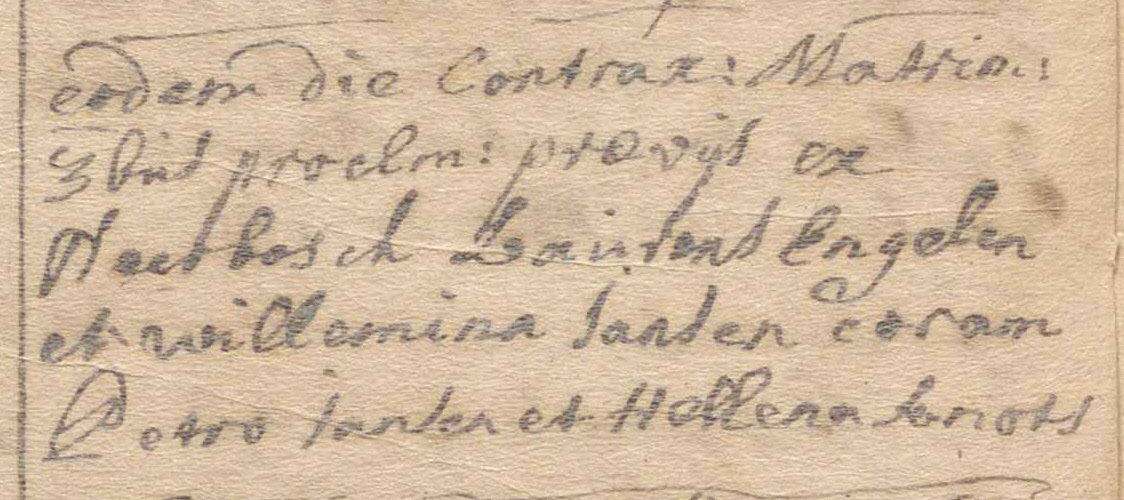 eodem die Contrax: Matrim:
3bus proclm: prævijs ex
Neerbosch Laurens Engelen
et willemina Jansen coram
Petro Jansen et Hellena